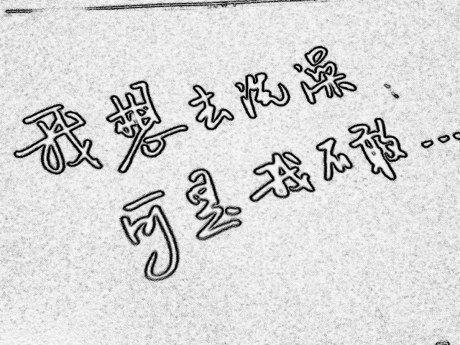 我想去洗澡
可是我不敢...